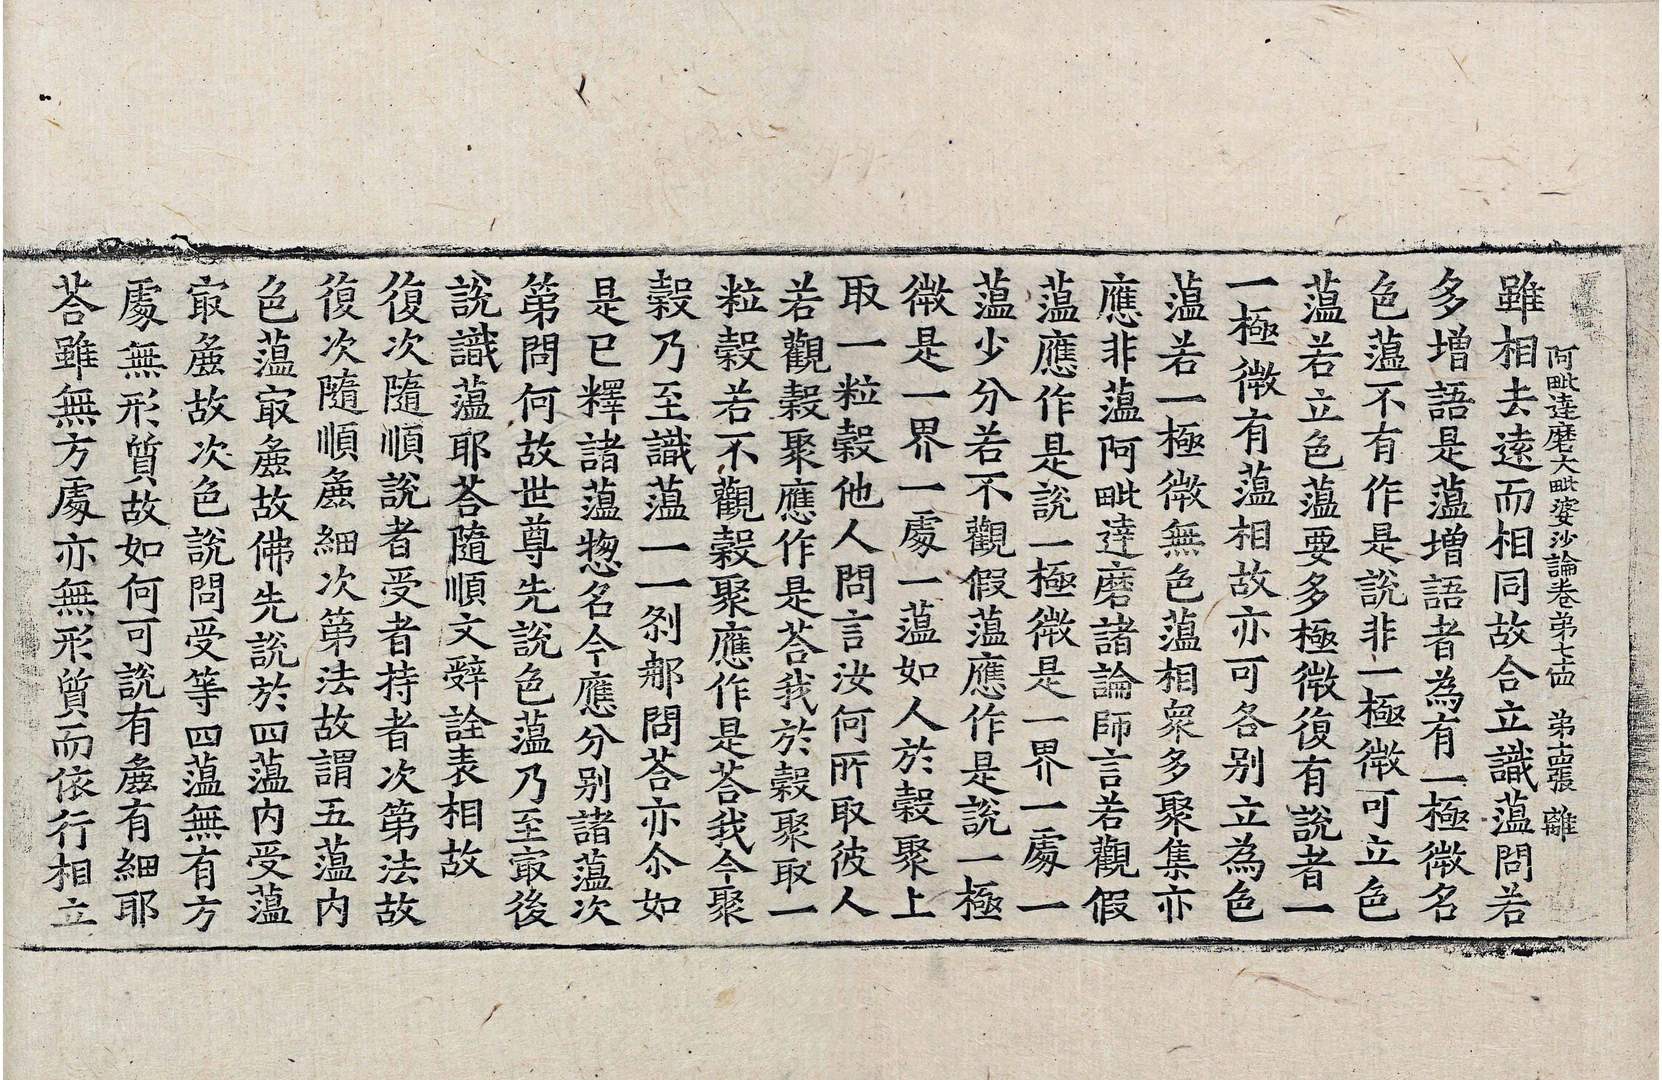 阿毗達磨大毗婆沙論卷第七十四 第十四張 離
雖相去遠而相同故合立識蕰問若
多增語是蕰增語者為有一極微名
色蕰不有作是說非一極微可立色
蕰若立色蕰要多極微復有說者一
一極微有蕰相故亦可各别立為色
蕰若一極微無色蕰相衆多聚集亦
應非蕰阿毗達磨諸論師言若觀假
蕰應作是說一極微是一界一處一
蕰少分若不觀假蕰應作是說一極
微是一界一處一蕰如人於穀聚上
取一粒穀他人問言汝何所取彼人
若觀穀聚應作是荅我於穀聚取一
粒穀若不觀穀聚應作是荅我今聚
穀乃至識蕰一一剎那問荅亦尒如
是已釋諸蕰揔名今應分别諸蕰次
第問何故世尊先說色蕰乃至㝡後
說識蕰耶荅隨順文辝詮表相故
復次隨順說者受者持者次第法故
復次隨順麁細次第法故謂五蕰内
色蕰㝡麁故佛先說於四蕰内受蕰
㝡麁故次色說問受等四蕰無有方
處無形質故如何可說有麁有細耶
荅雖無方處亦無形質而依行相立